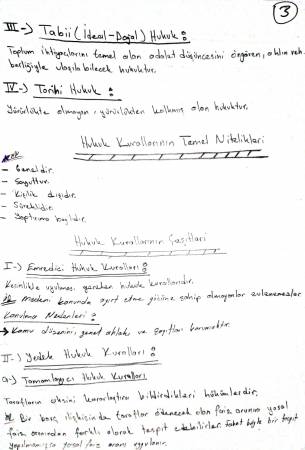 3
III-) Tabii (İdeal-Doğal) Hukuk :
Toplum ihtiyaçlarını temel alan adalet düşüncesini öngören, aklın reh-
berliğiyle ulaşılabilecek hukuktur.
IV-) Tarihi Hukuk :
Yürürlükte olmayan, yürürlükten kalkmış olan hukuktur.
Hukuk Kurallarının Temel Nitelikleri
- Geneldir.
- Soyuttur.
- Kişilik dışıdır.
- Süreklidir.
- Yaptırıma bağlıdır.
Hukuk Kurallarının Çeşitleri
I-) Emredici Hukuk Kuralları :
Kesinlikle uyulması gereken hukuk kurallarıdır.
Medeni kanunda ayırt etme gücüne sahip olmayanlar evlenemezler
Konulma Nedenleri :
→ Kamu düzenini, genel ahlakı ve şahısları korumaktır.
II-) Yedek Hukuk Kuralları :
a-) Tamamlayıcı Hukuk Kuralları
Tarafların aksini kararlaştırıp bildirdikleri hükümlerdir.
Bir borç ilişkisinde taraflar ödenecek olan faiz oranını yasal
faiz oranından farklı olarak tespit edebilirler. Fakat böyle bir tespit
yapılmamışsa yasal faiz oranı uygulanır.